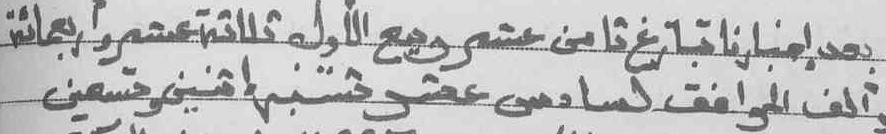 بعد إخبارنا بتاريخ ثامن عشر ربيع الأول ثلاثة عشر وأربعمائة
وألف الموافق لسادس عشر شتنبر اثنين وتسعين